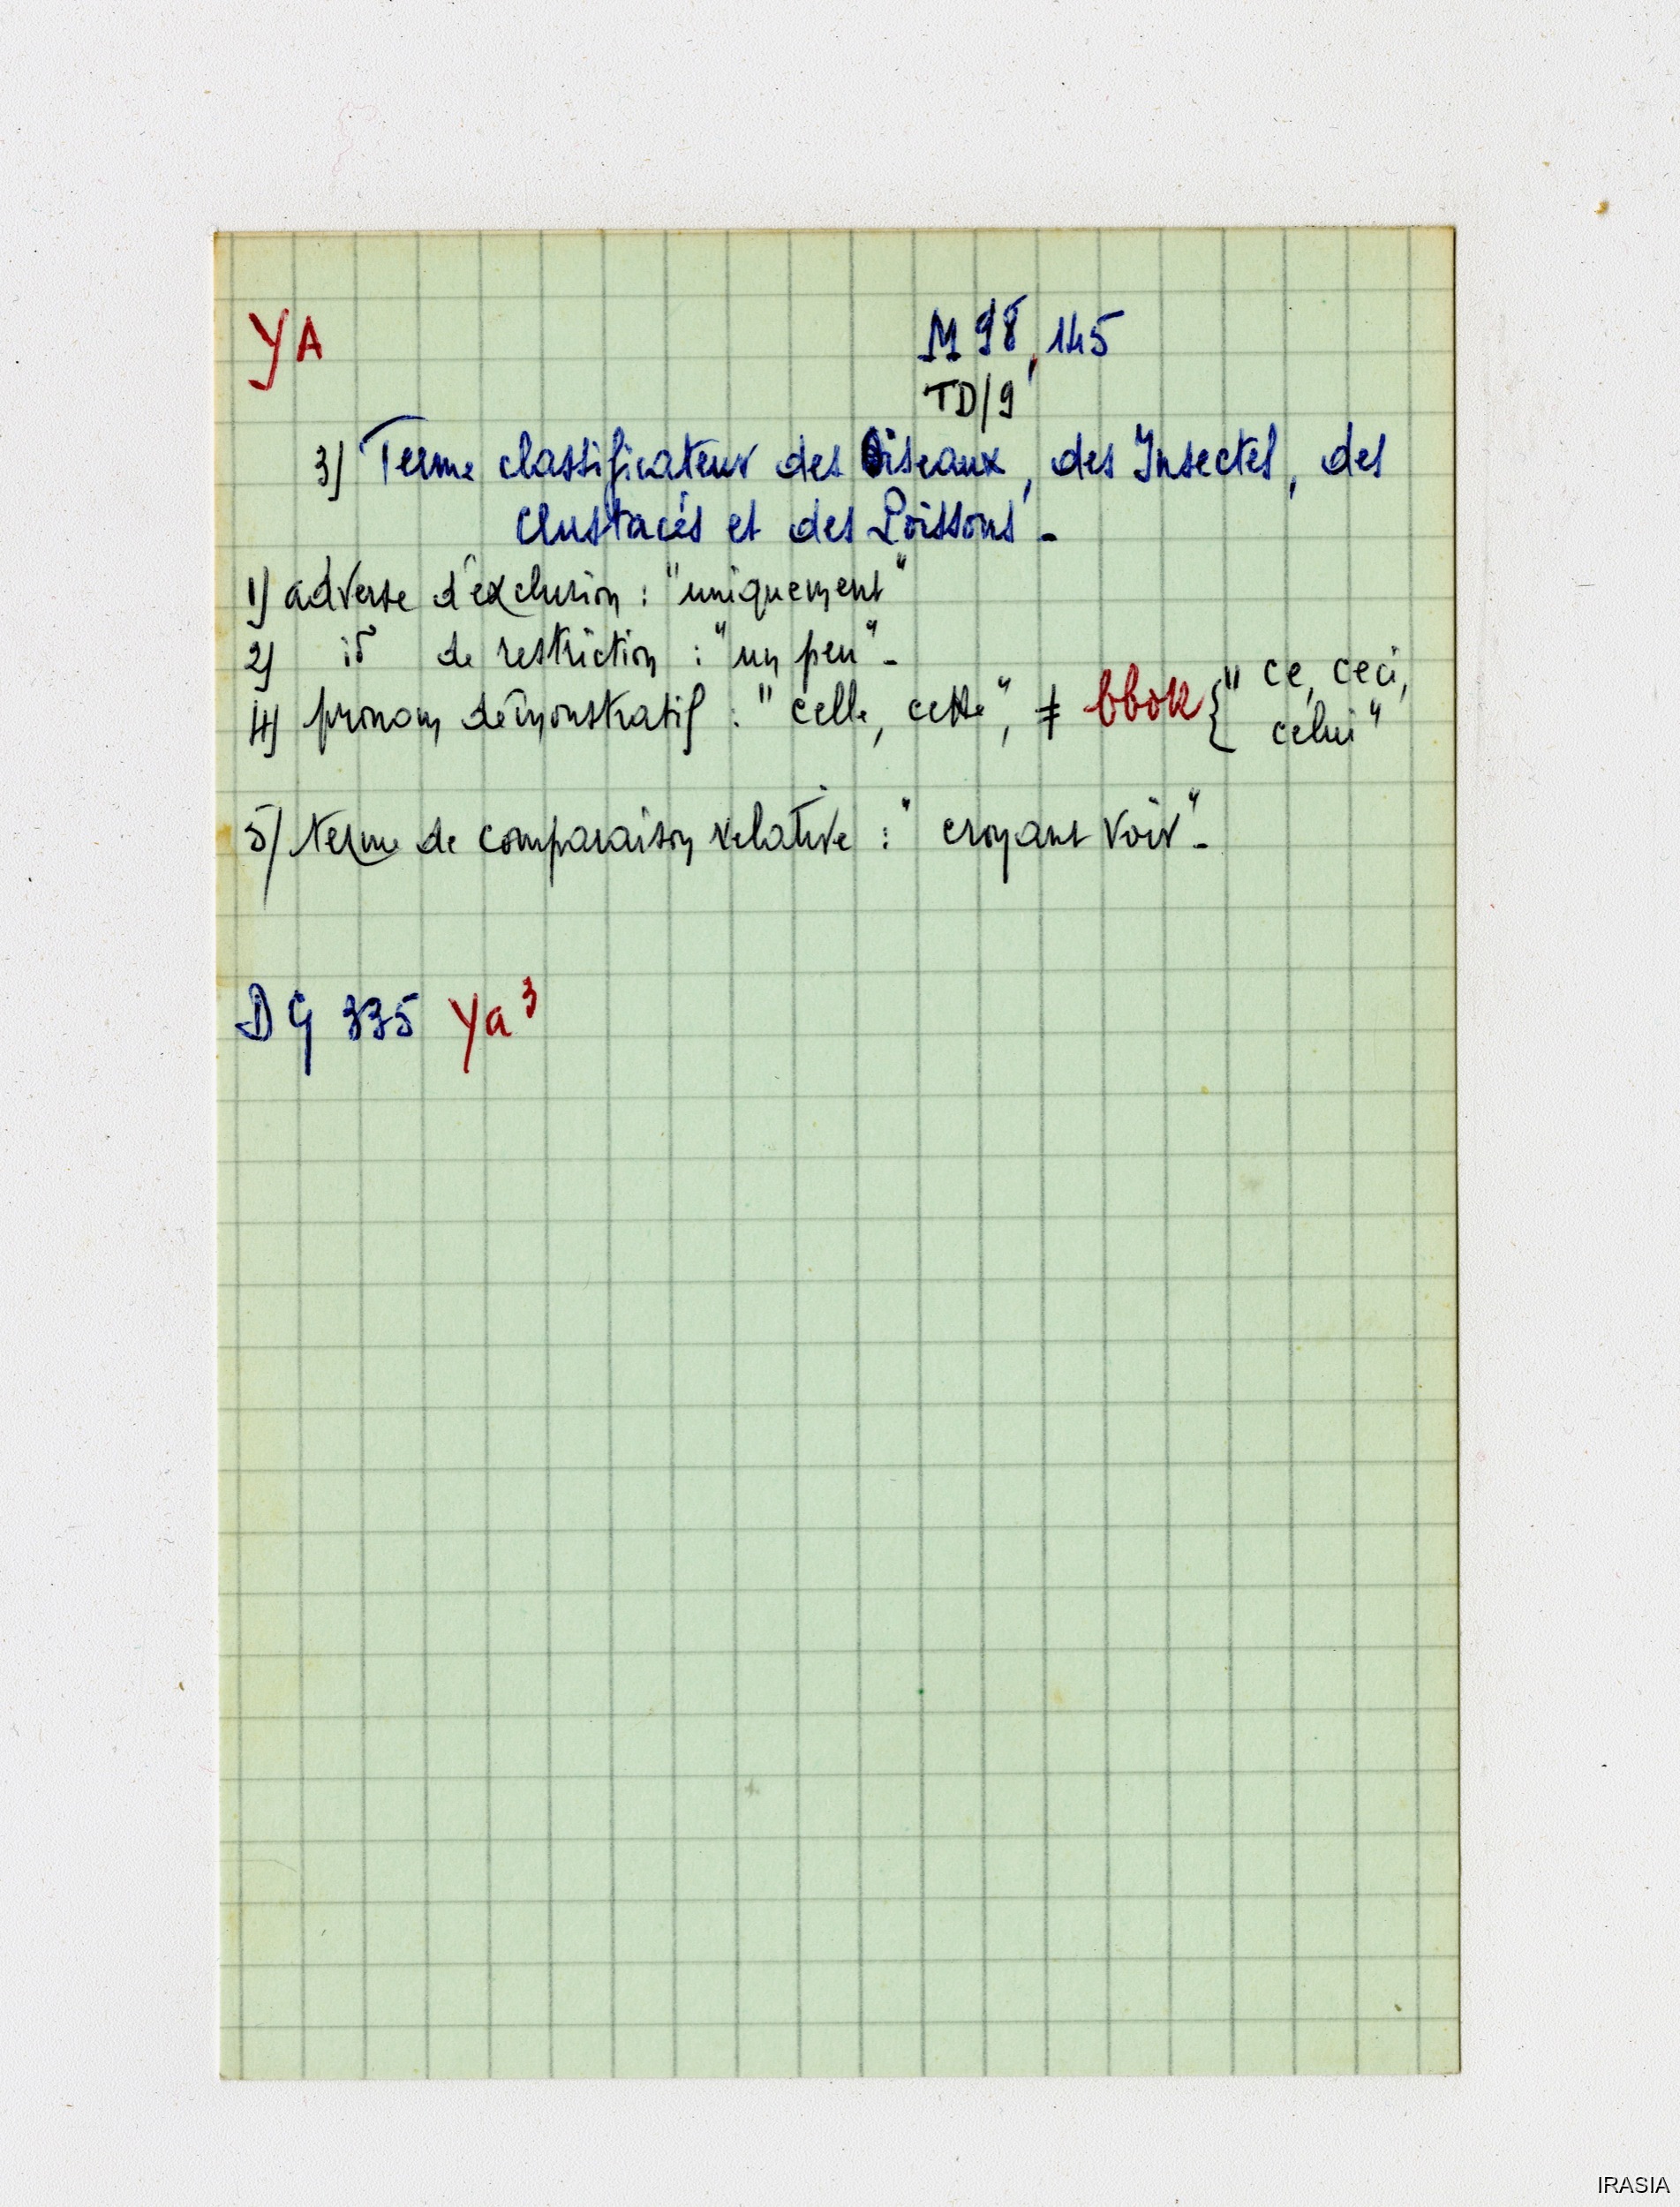 YA
M 98, 145
TD/9
3) Terme classificateur des Oiseaux, des Insectes, des
Crustacés et des Poissons -
1) adverbe d'exclusion : "uniquement"
2) id de restriction : "un peu" -
4) pronom démonstratif : "celle, cette", ≠ bbok {" ce, ceci,
celui"
5) terme de comparaison relative : "croyant voir" -
DG 335 Ya³
IRASIA